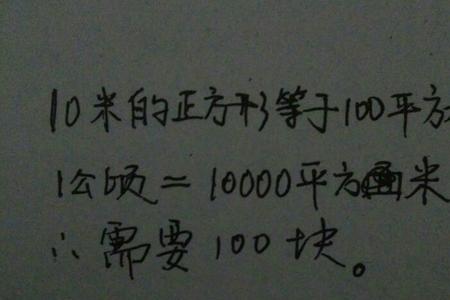 10米的正方形等于100平方
1公顷=10000平方米
∴需要100块。